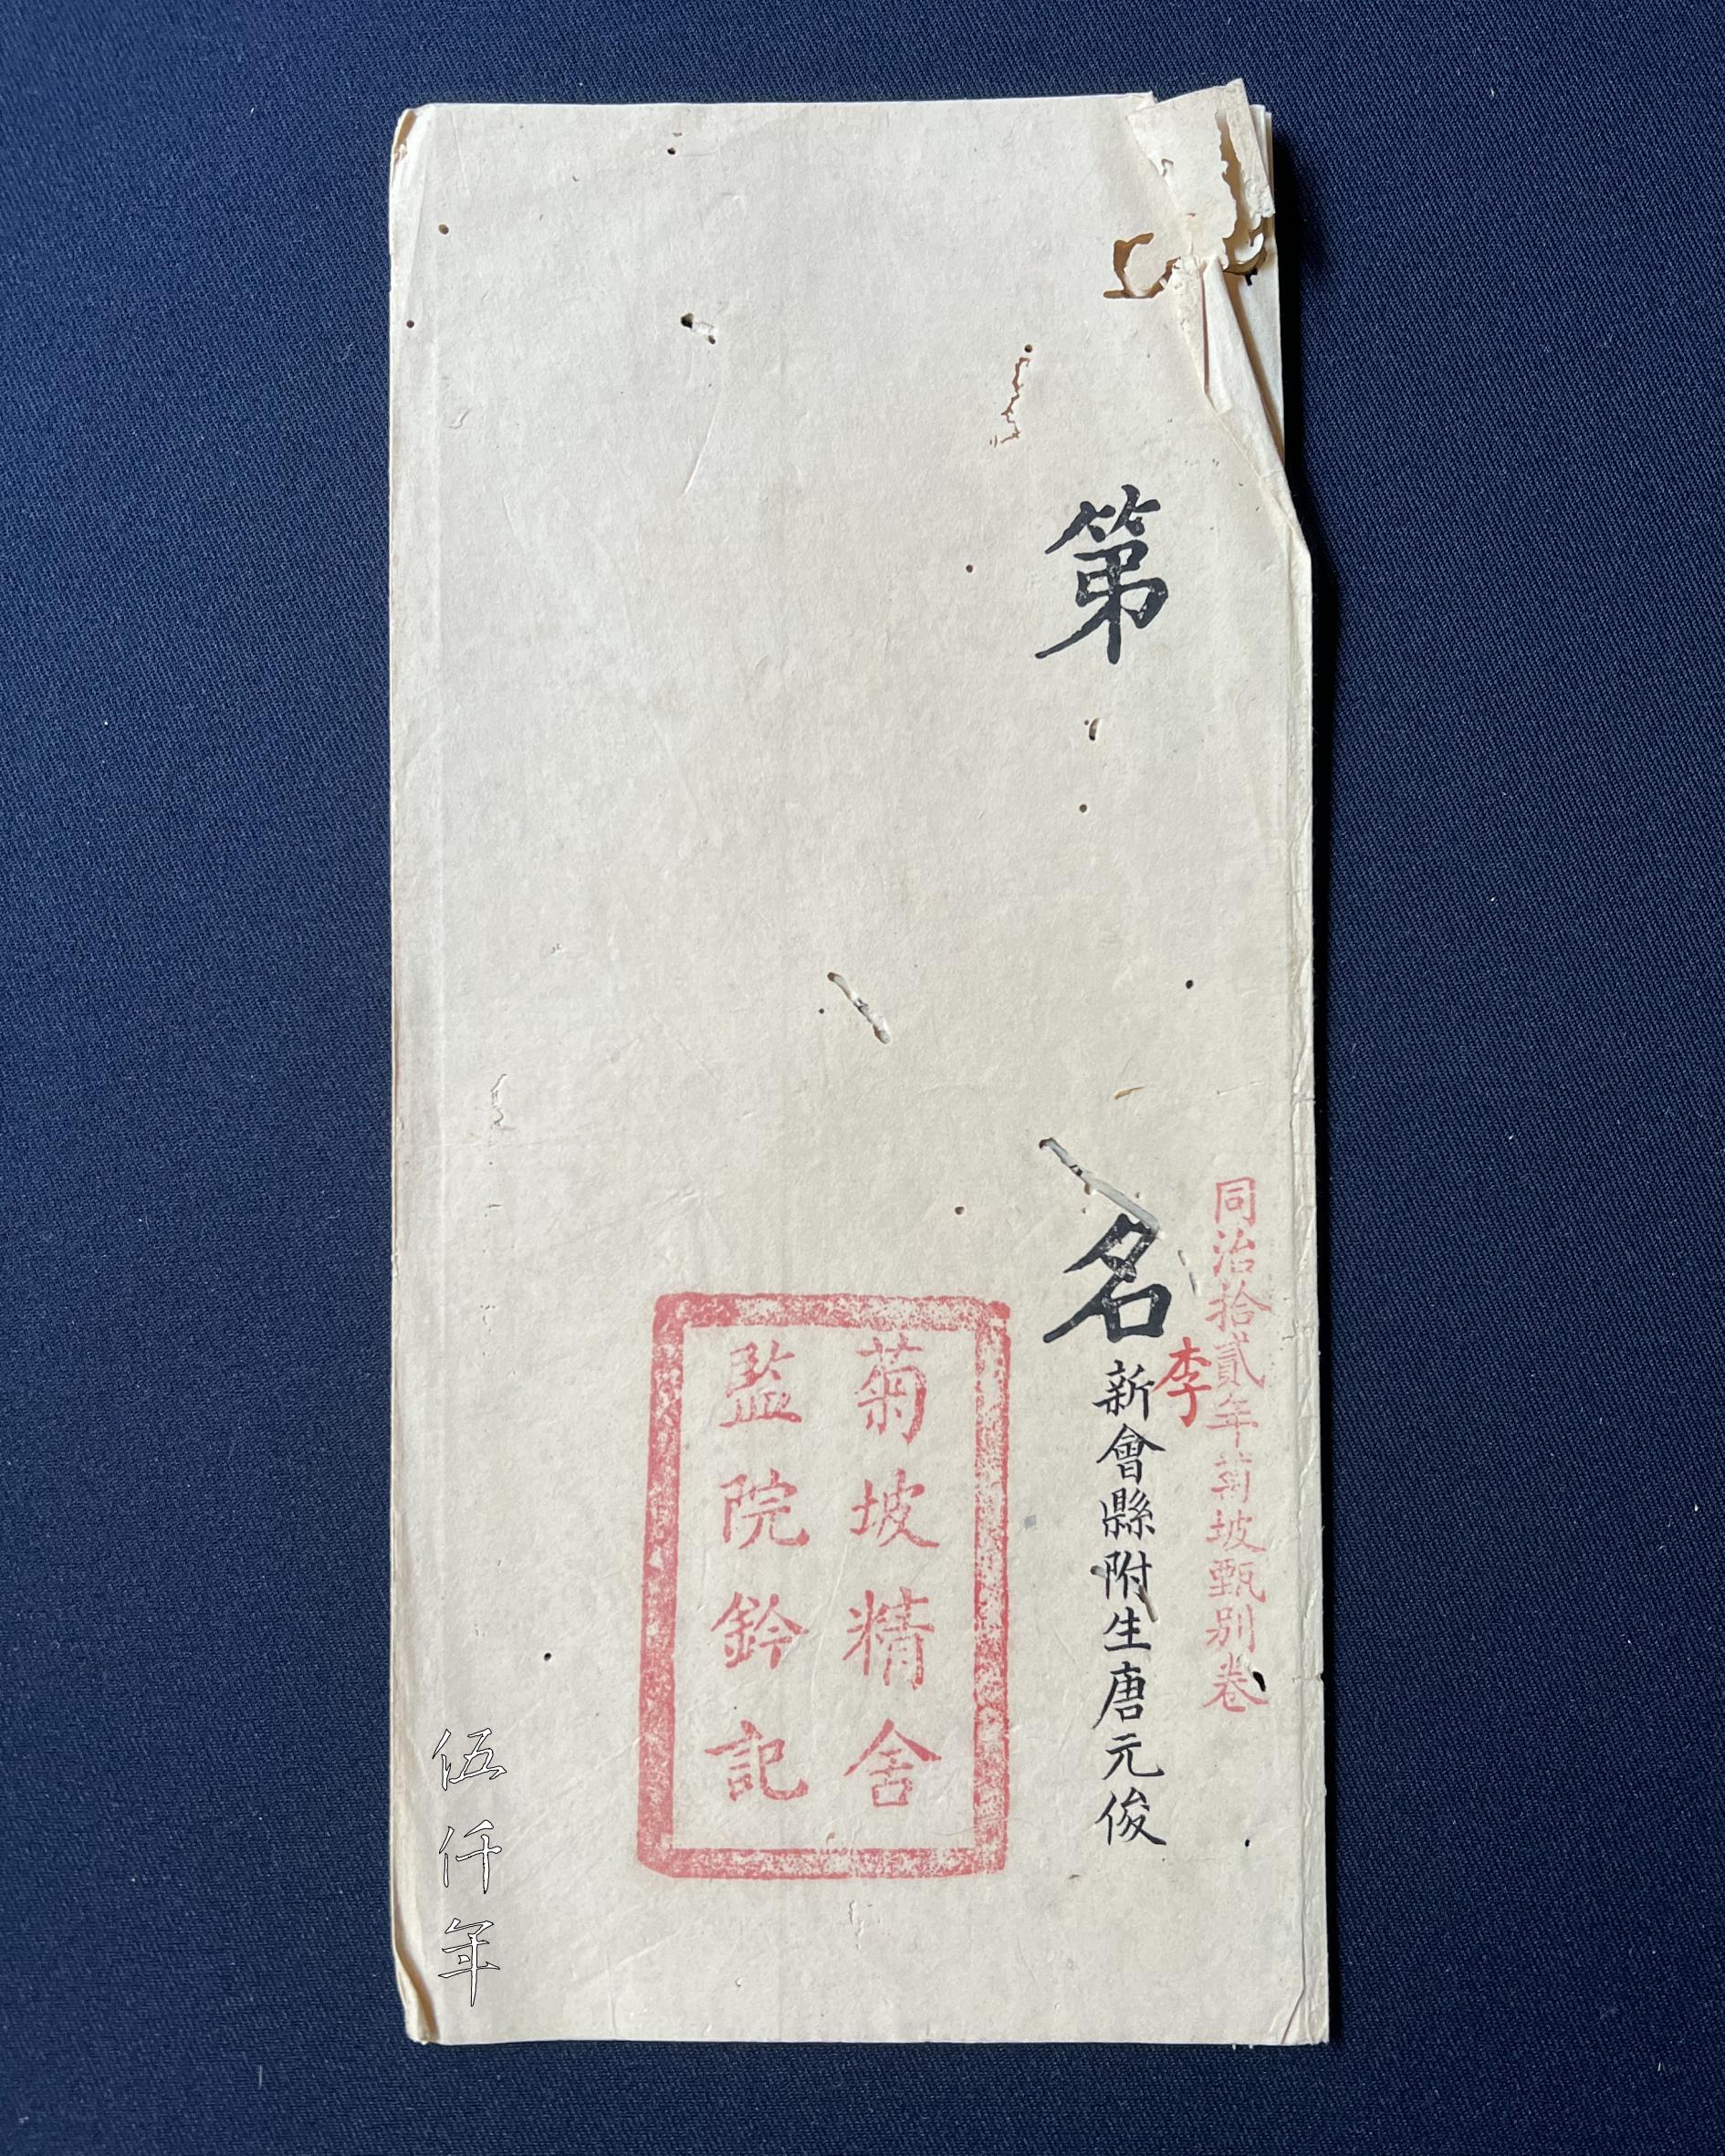 同治拾貳年菊坡甄别卷
李
第
名
新會縣附生唐元俊
菊坡精舍
監院鈐記
伍仟年